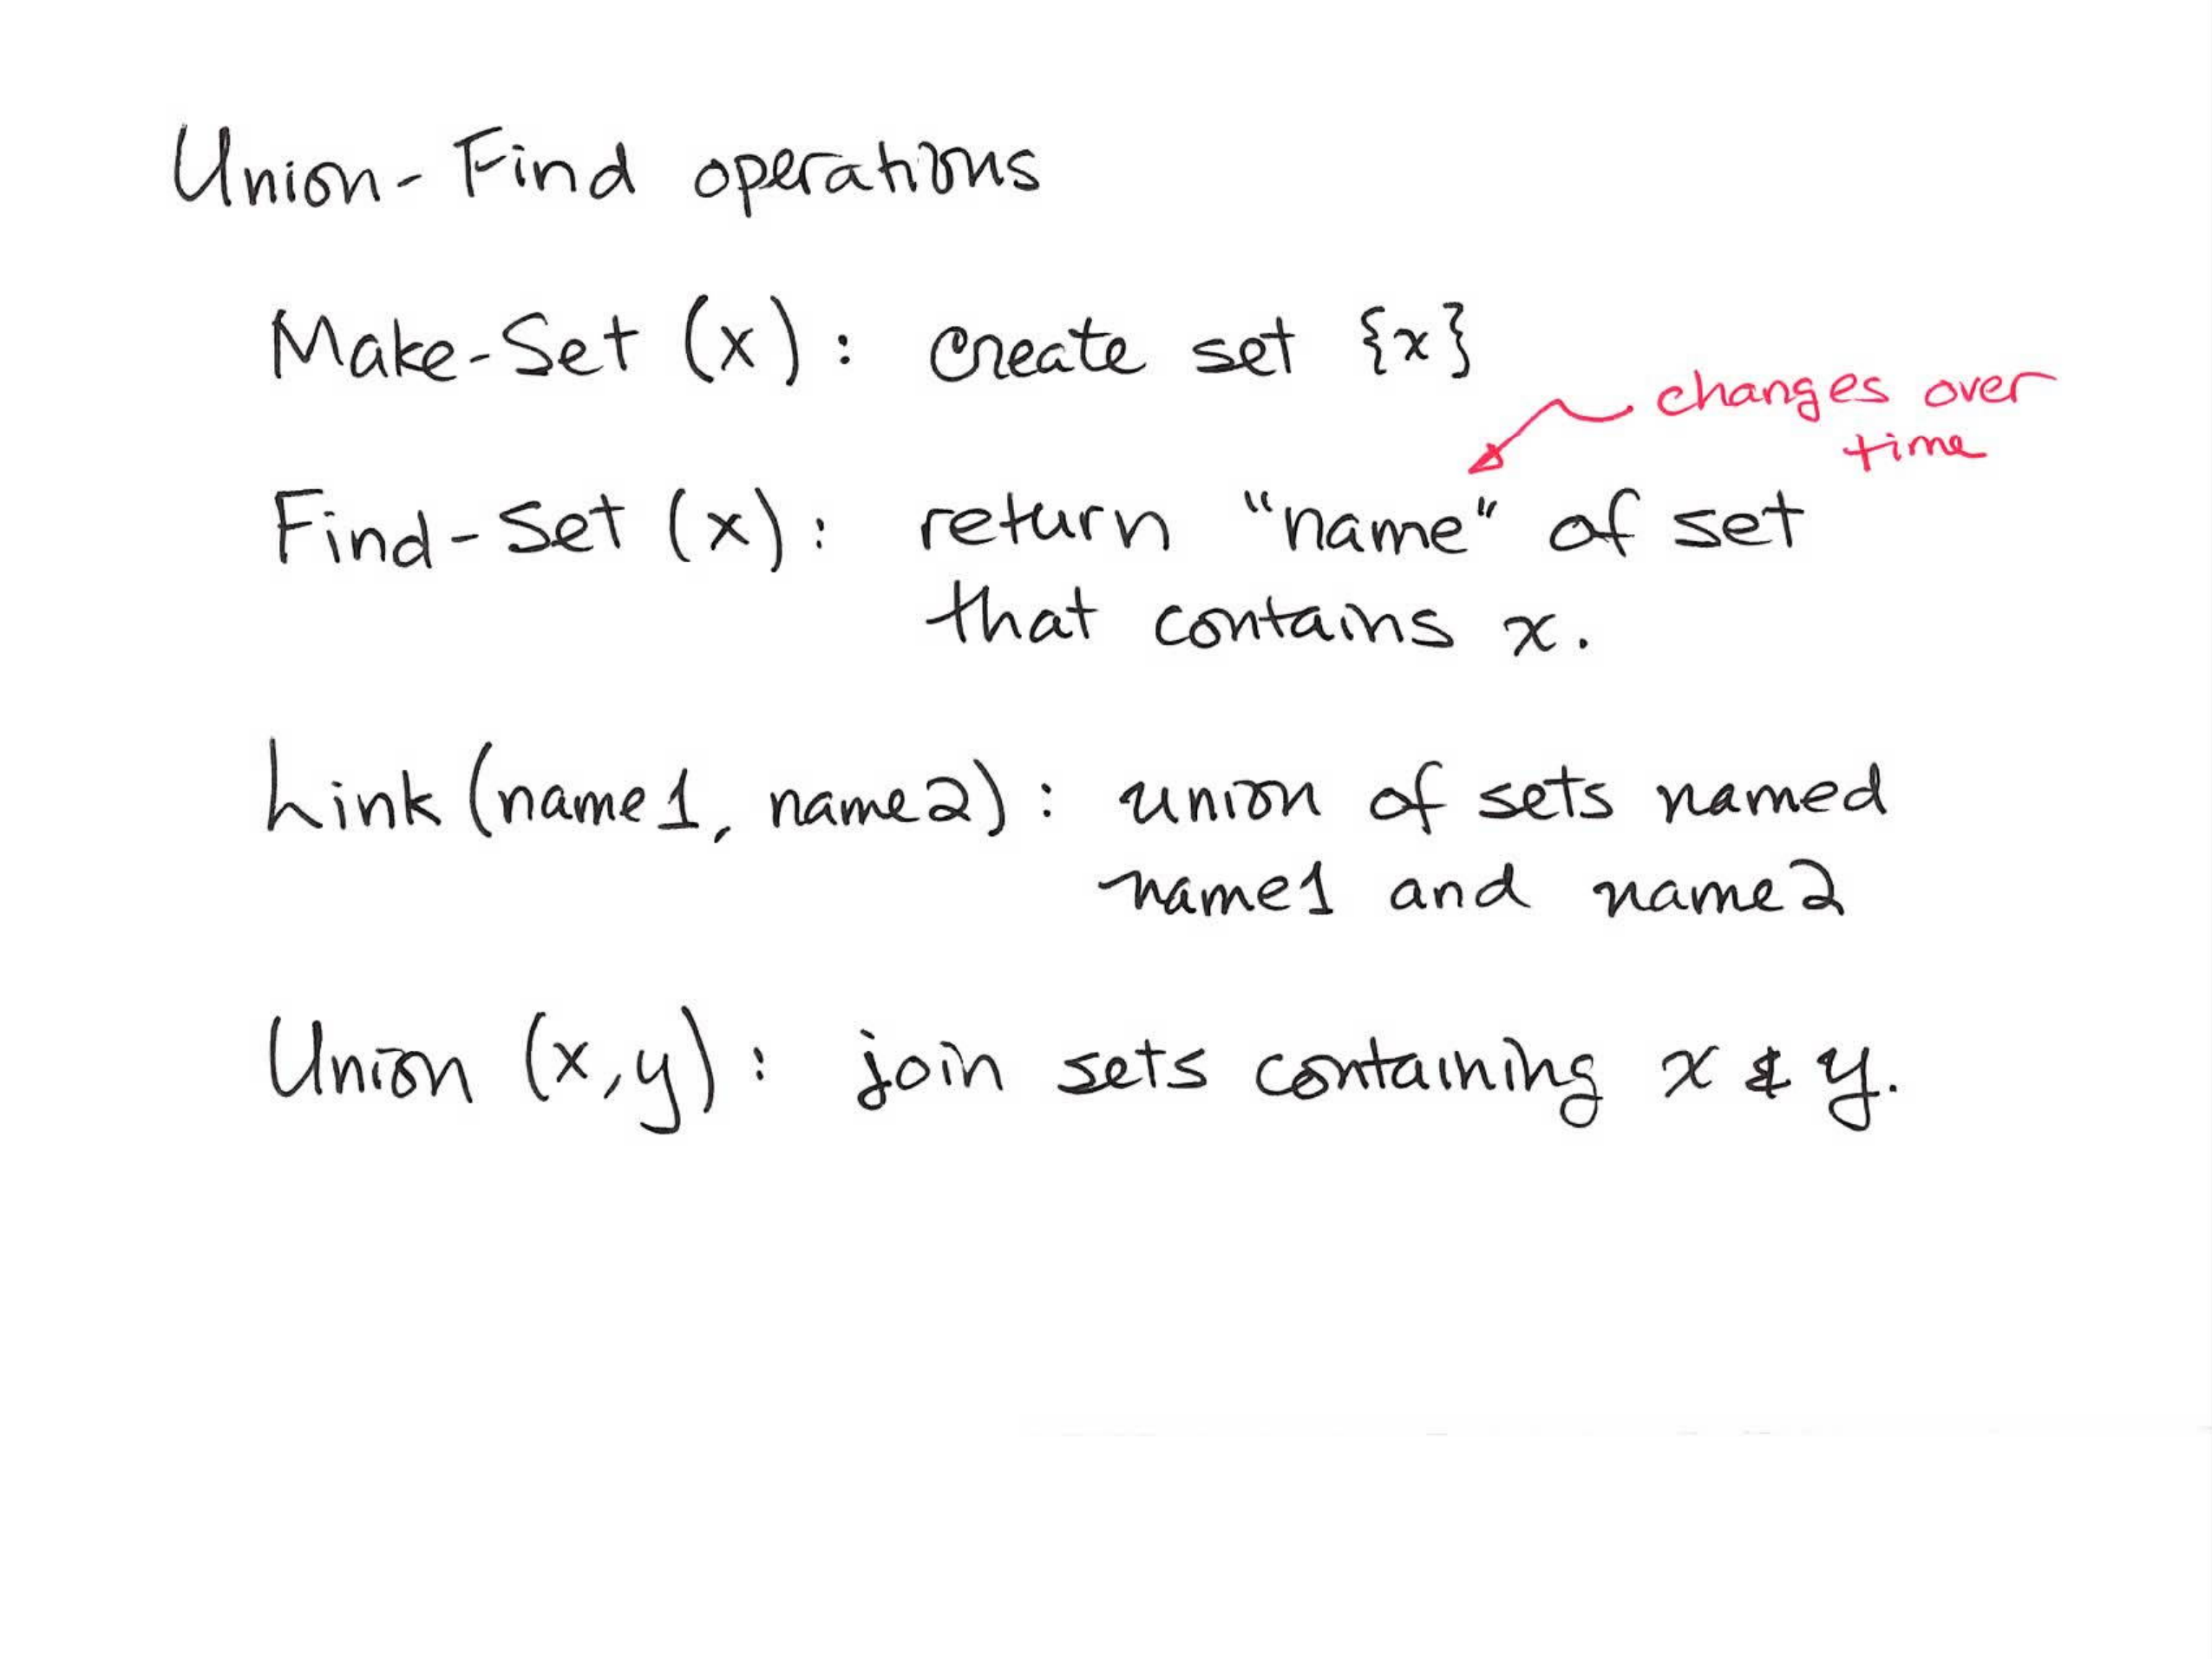 Union-Find operations
Make-Set (x): create set {x}
changes over
time
Find-Set (x): return "name" of set
that contains x.
Link (name1, name2): union of sets named
name1 and name2
Union (x,y): join sets containing x & y.